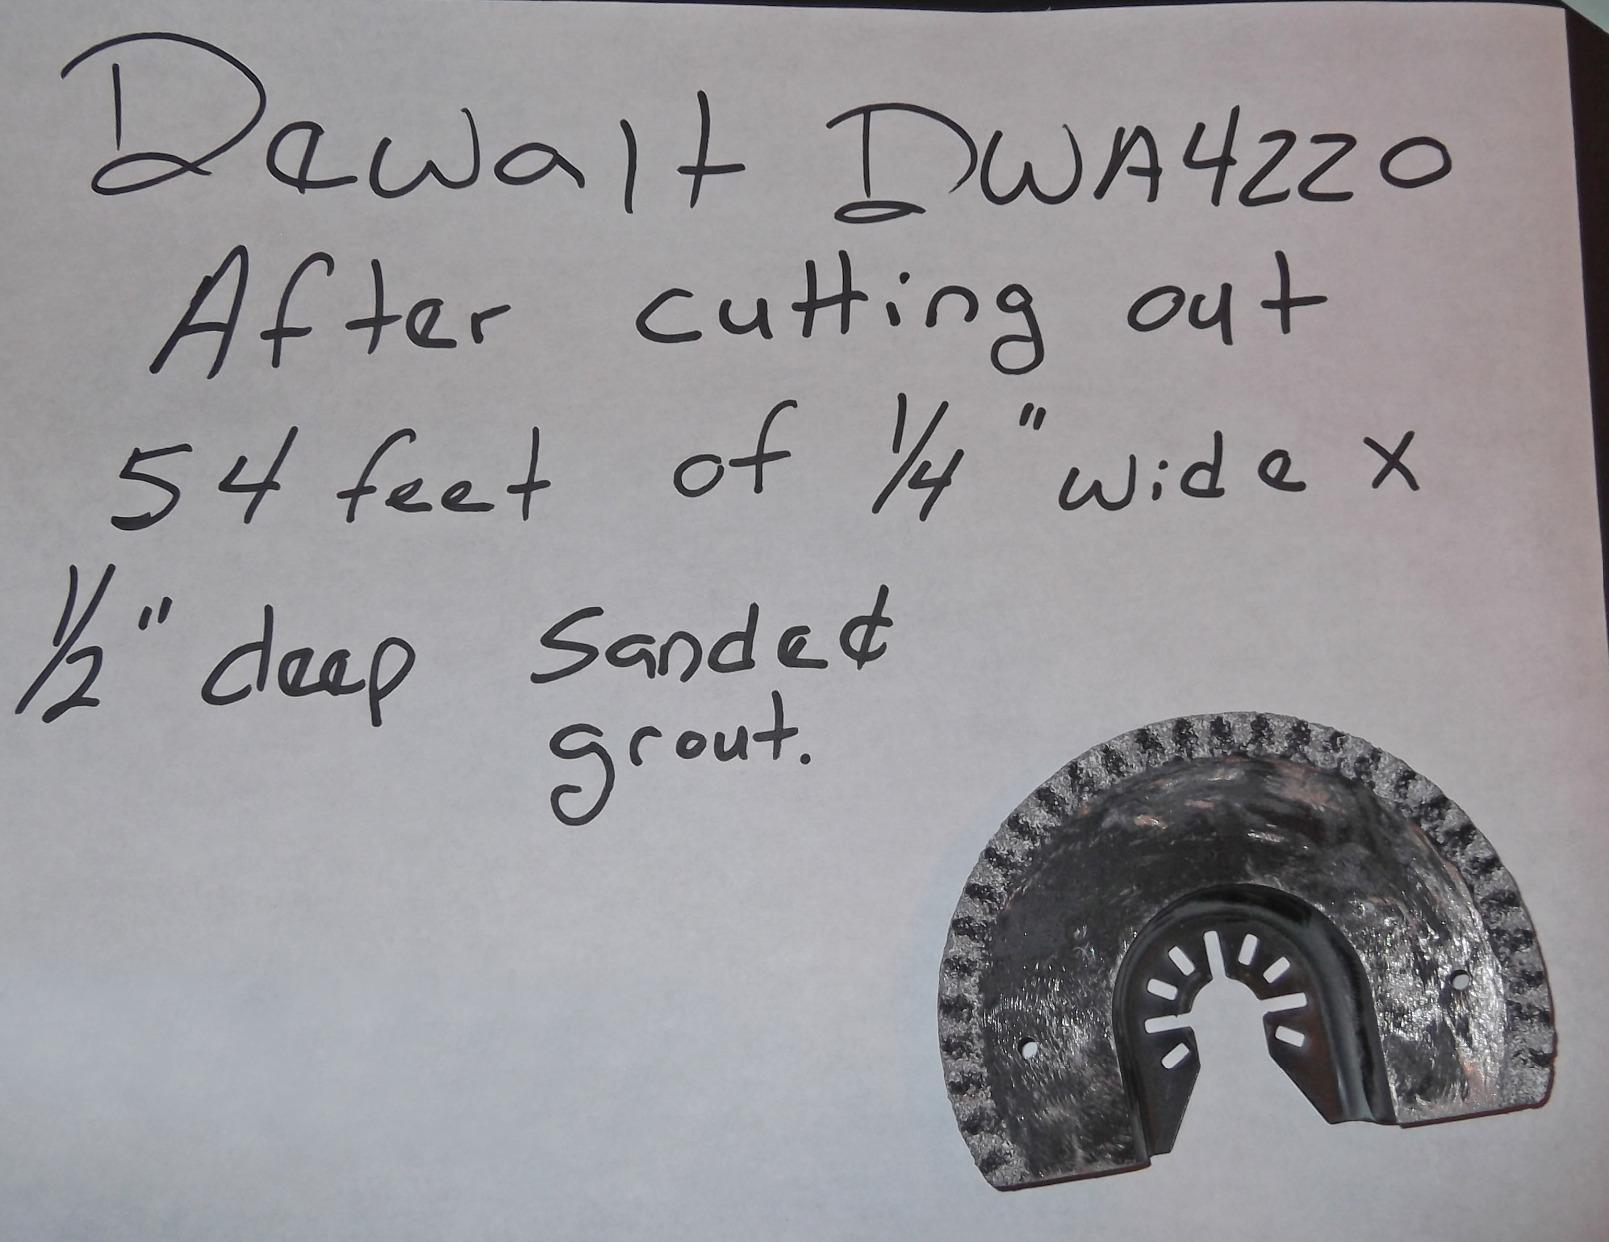 Dewalt DWA4220
After cutting out
54 feet of 1/4" wide x
1/2" deep Sanded
grout.